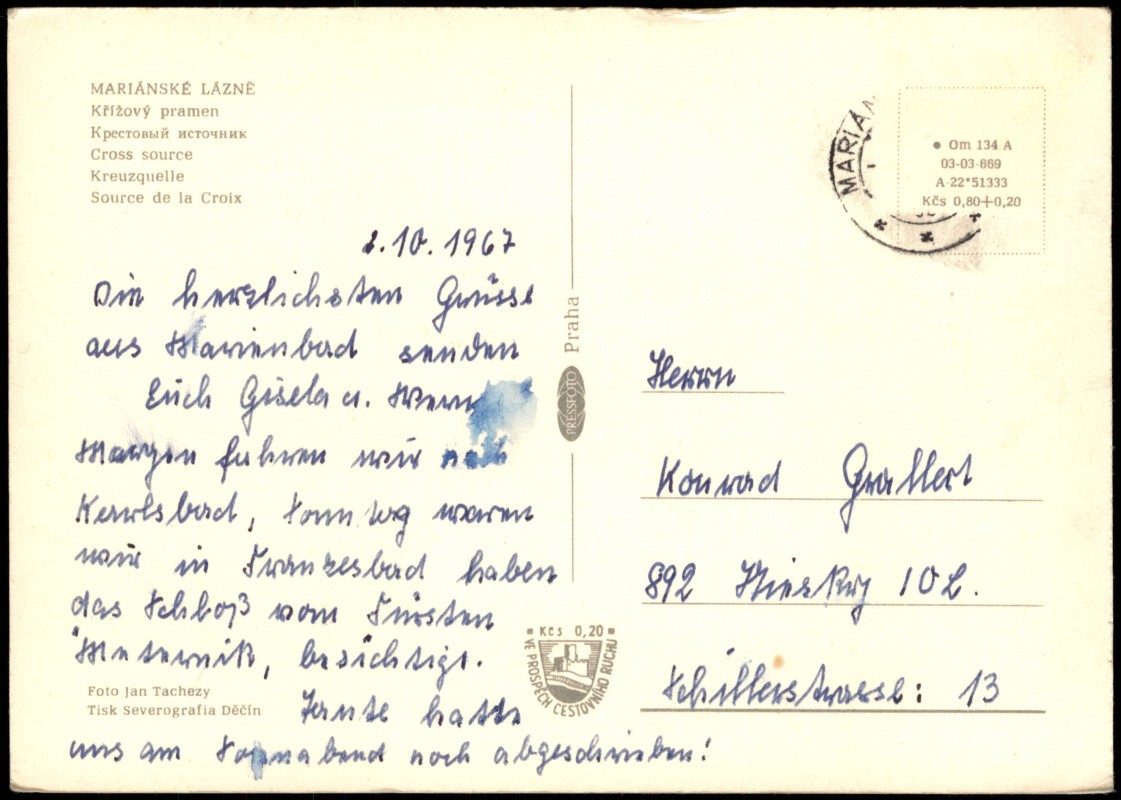 MARIÁNSKÉ LÁZNĚ
Křížový pramen
Крестовый источник
Cross source
Kreuzquelle
Source de la Croix
2.10.1967
Die herzlichsten Grüsse
aus Marienbad senden
Euch Gisela u. Wern
Morgen fahren wir nach
Karlsbad, Sonntag waren
wir in Franzesbad haben
das Schloß vom Fürsten
Meternik, besichtigt.
hatte
uns am Sonnabend noch abgeschrieben!
Foto Jan Tachezy
Tisk Severografia Děčín
Praha
PRESSFOTO
Kčs 0,20
VE PROSPĚCH CESTOVNÍHO RUCHU
MARIÁN
Om 134 A
03-03-669
A-22*51333
Kčs 0,80+0,20
Herrn
Konrad Grallert
892 Niesky 10 L.
Schillerstrasse: 13